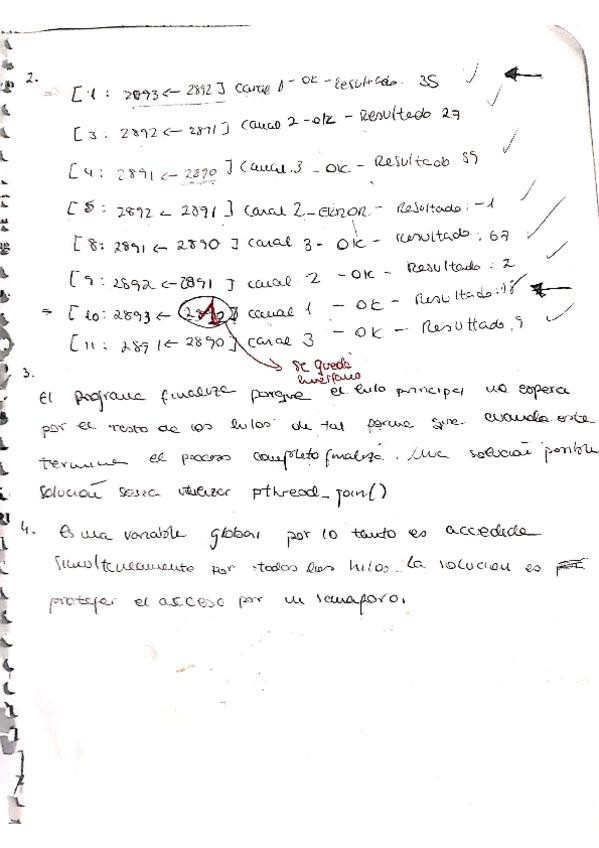 2.
[1: 2893 ← 2892] canal 1 - OK - Resultado: 35
[3: 2892 ← 2891] canal 2 - OK - Resultado 27
[4: 2891 ← 2890] canal 3 - OK - Resultado 59
[5: 2892 ← 2891] canal 2 - ERROR - Resultado: -1
[8: 2891 ← 2890] canal 3 - OK - Resultado: 67
[9: 2892 ← 2891] canal 2 - OK - Resultado: 2
[10: 2893 ← 1] canal 1 - OK - Resultado:
[11: 2891 ← 2890] canal 3 - OK - Resultado, 9
se queda
huérfano
3.
El programa finaliza porque el hilo principal no espera
por el resto de los hilos de tal forma que cuando este
termine el proceso completo finaliza. Una solución posible
solución sería utilizar pthread_join()
4. Es una variable global por lo tanto es accedida
simultáneamente por todos los hilos. La solución es
proteger el acceso por un semáforo.